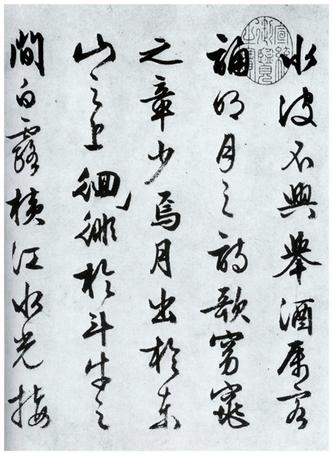 水波不興舉酒屬客
誦明月之詩歌窈窕
之章少焉月出於東
山之上徊徘於斗牛之
間白露横江水光接